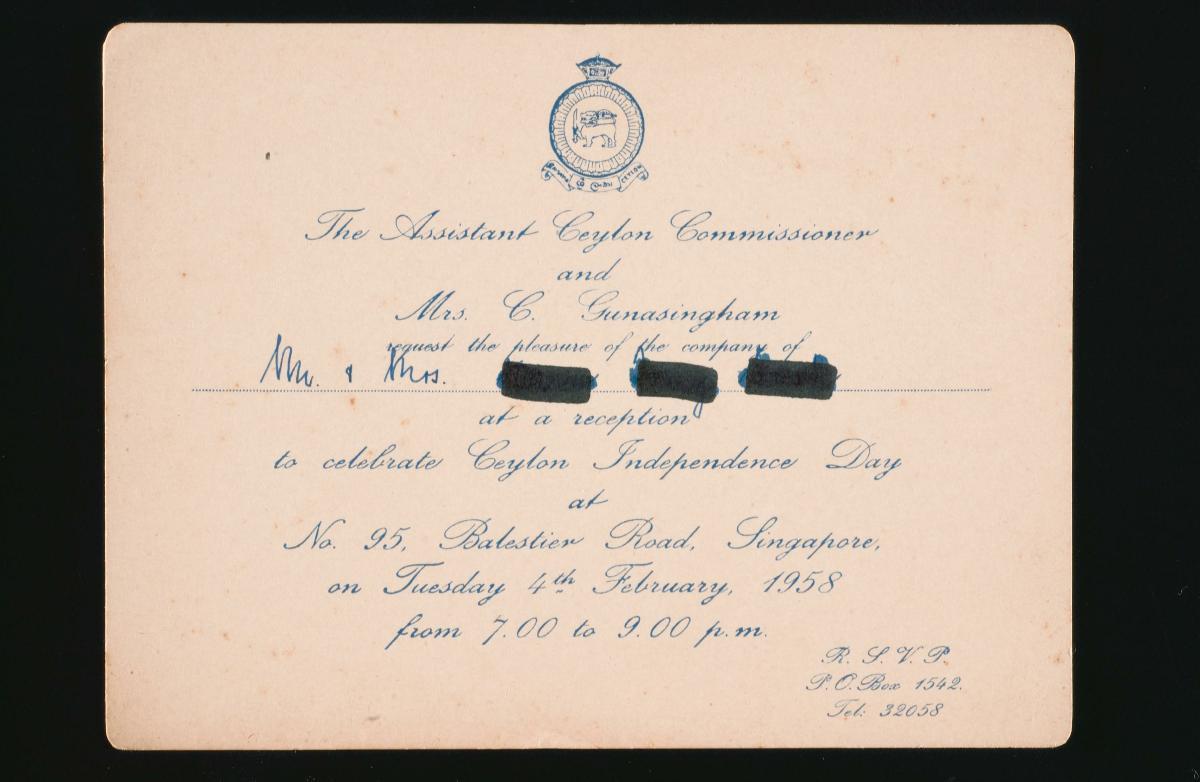 CEYLON
The Assistant Ceylon Commissioner
and
Mrs. C. Gunasingham
request the pleasure of the company of
Mr. & Mrs.
at a reception
to celebrate Ceylon Independence Day
at
No. 95, Balestier Road, Singapore,
on Tuesday 4th February, 1958
from 7.00 to 9.00 p.m.
R. S. V. P.
P.O. Box 1542.
Tel: 32058